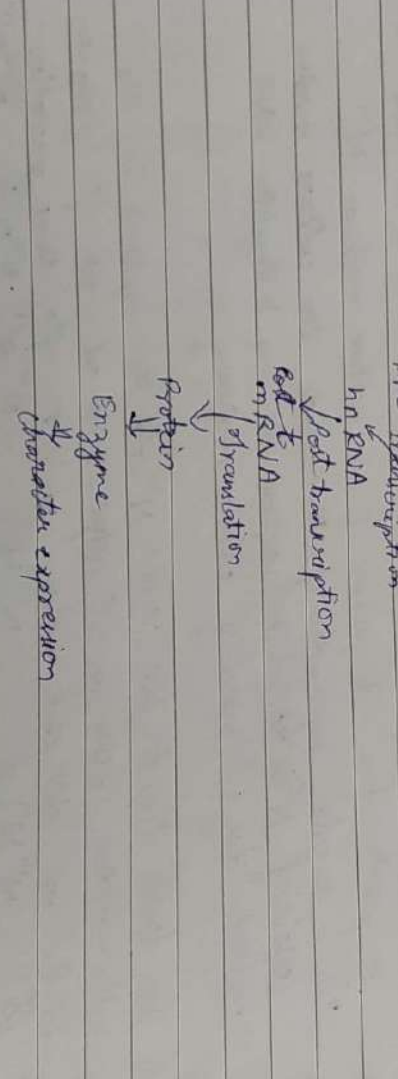 transcription
hn RNA
Post transcription
m RNA
Translation.
Protein
Enzyme
Character expression